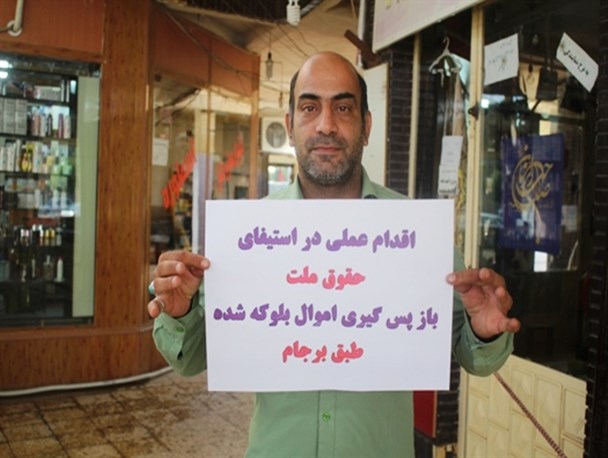 اقدام عملی در استیفای
حقوق ملت
باز پس گیری اموال بلوکه شده
طبق برجام